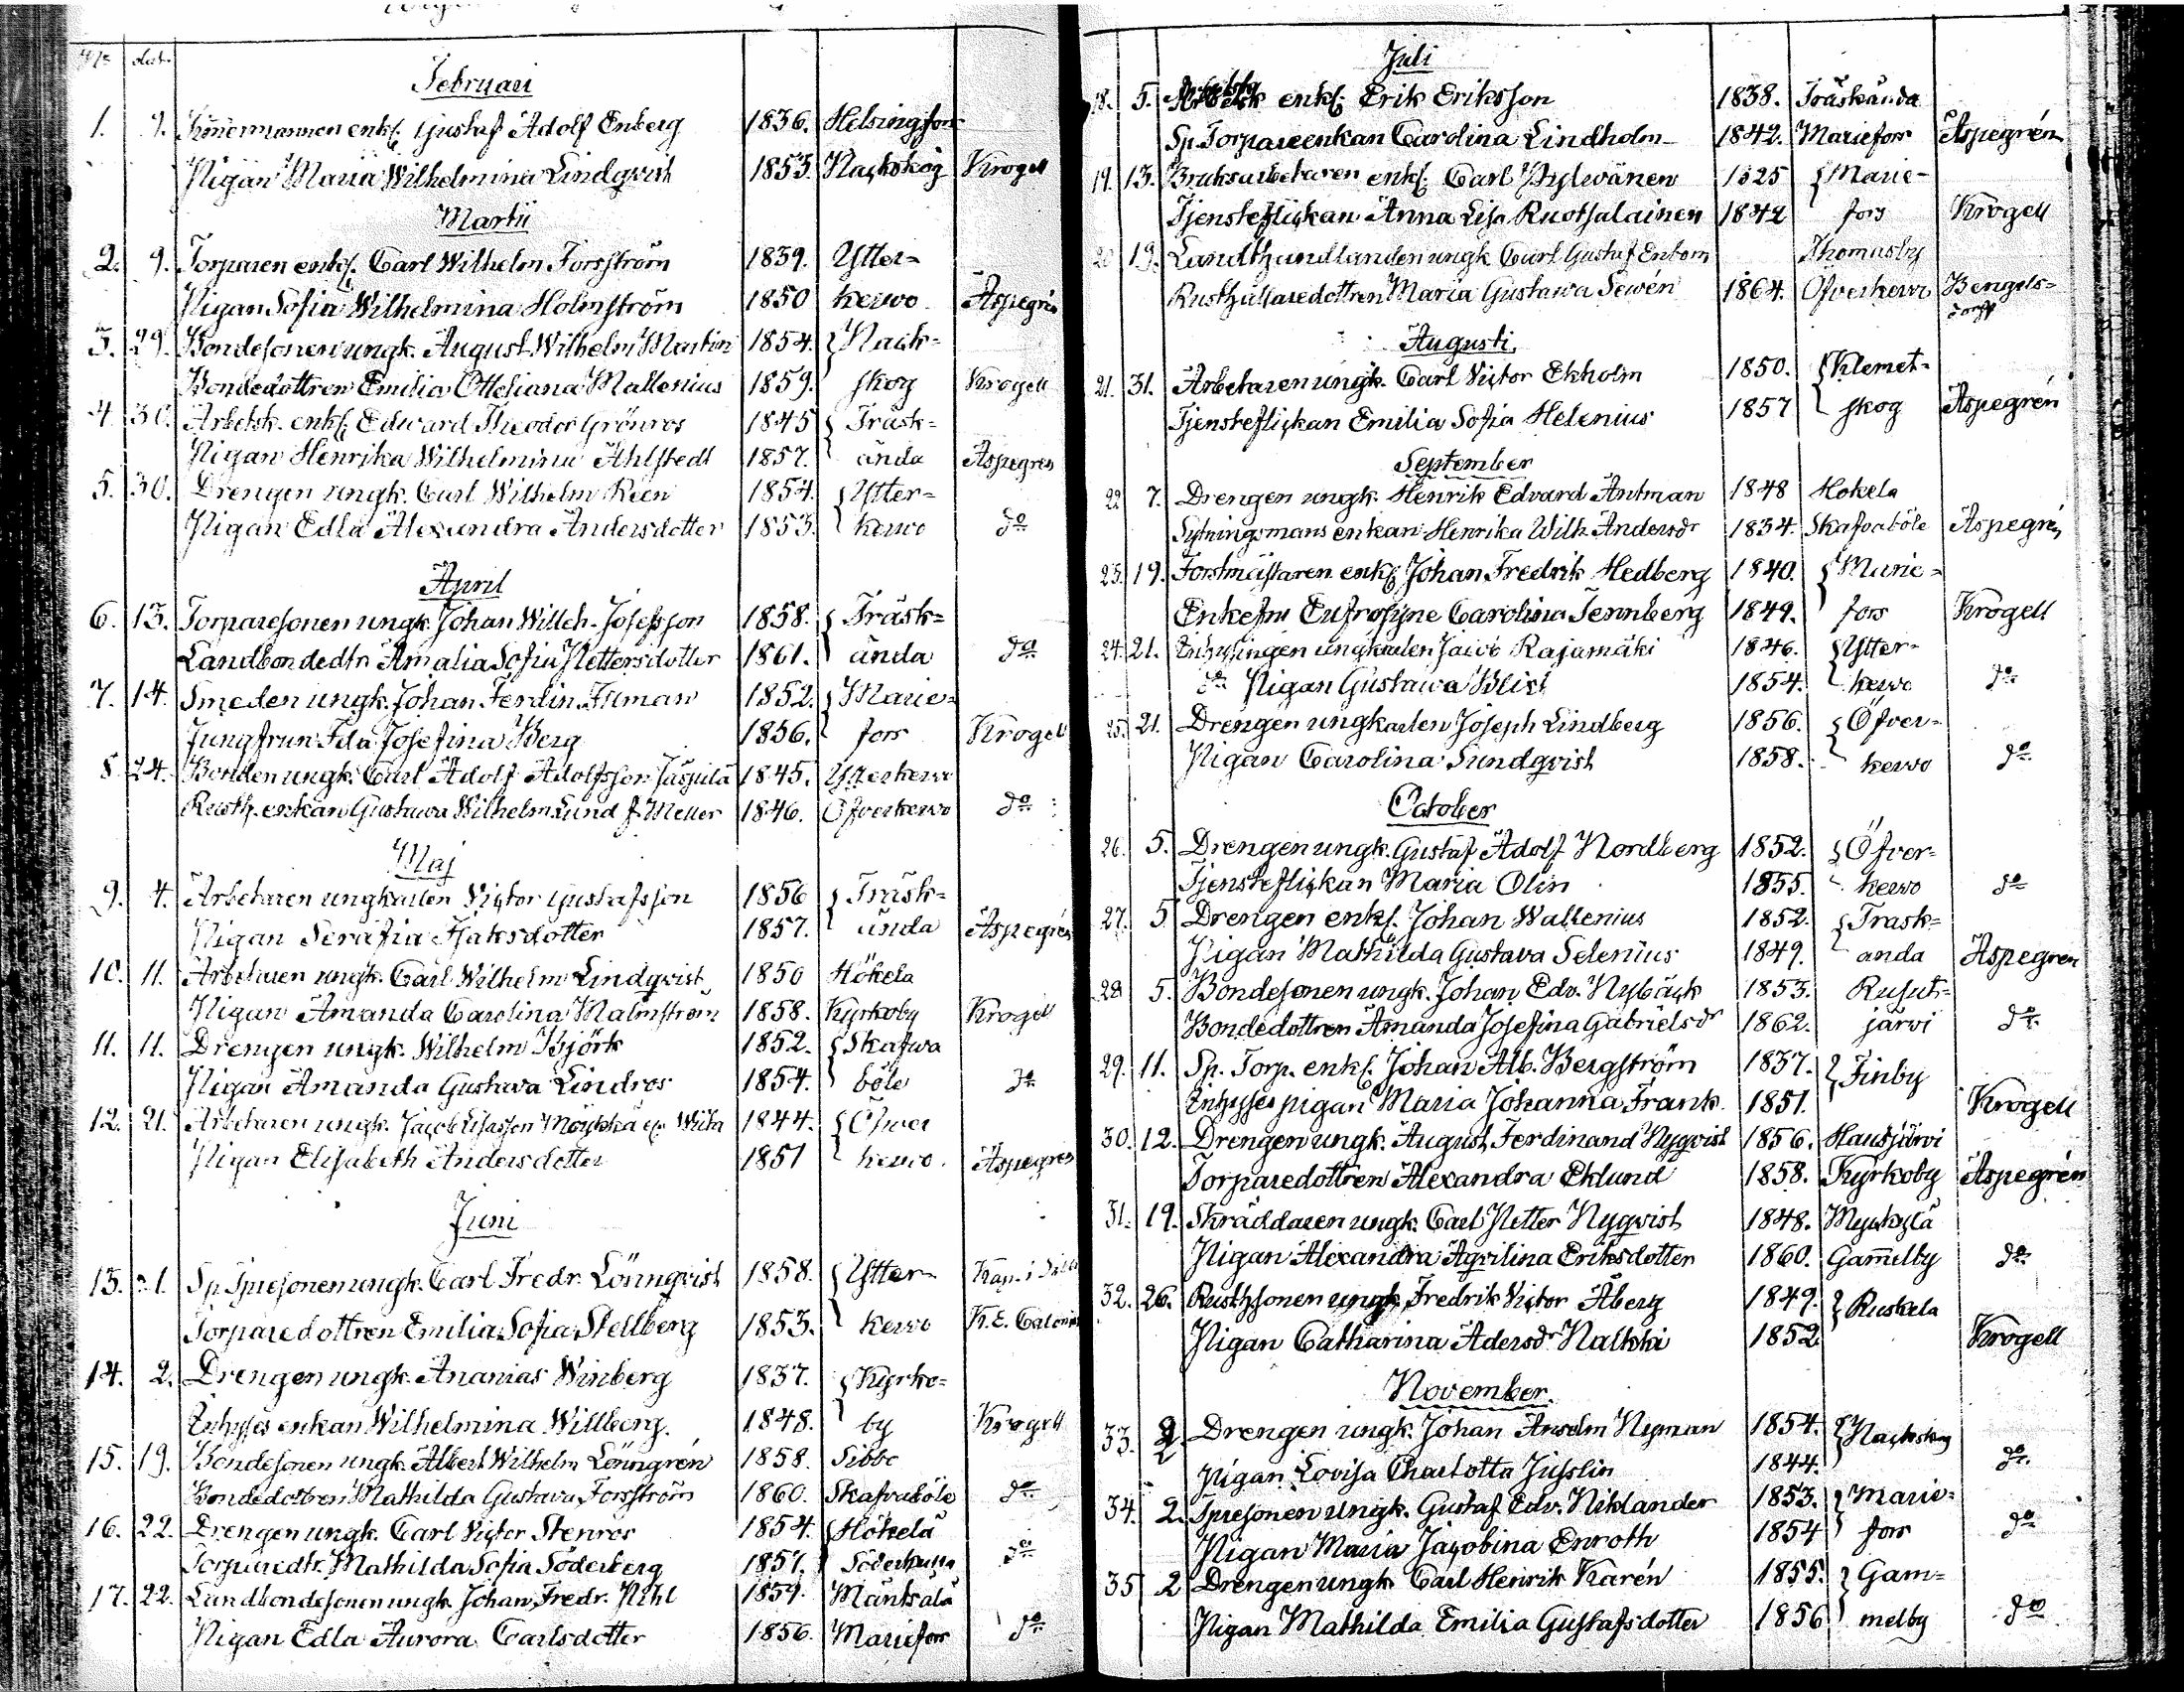 dat.
Februari
1. 9. enkl. Gustaf Adolf Enberg 1836. Helsingfors
Pigan Maria Wilhelmina Lindqvist 1853. Nackskog Krogell
Martii
2. 9. Torparen enkl. Carl Wilhelm Forsström 1839. Ytter=
Pigan Sofia Wilhelmina Holmström 1850 kerwo Aspegrén
3. 29. Bondesonen ungk. August Wilhelm Martin 1854. Nack=
Bondedottren Emilia Otteliana Mallenius 1859. skog Krogell
4. 30. Arbetsk. enkl. Edward Theodor Grönros 1845 Träsk=
Pigan Henrika Wilhelmina Ahlstedt 1857. ända Aspegrén
5. 30. Drengen ungk. Carl Wilhelm Reen 1854. Ytter=
Pigan Edla Alexandra Andersdotter 1853. kerwo do
April
6. 13. Torparesonen ungk. Johan Willeh. Josefsson 1858. Träsk=
Landbondedtr Amalia Sofia Pettersdotter 1861. ända do
7. 14. Smeden ungk. Johan Ferdin. 1852. Marie=
Jungfrun Ida Josefina Berg 1856. fors Krogell
8. 24. Bonden ungk. Carl Adolf Adolfsson 1845. Ytterkerwo
Rusth. enkan Gustawa Wilhelm. Lund f. Meller 1846. Öfverkerwo do
Maj
9. 4. Arbetaren ungkarlen Victor Gustafsson 1856 Träsk=
Pigan Serafia Isaksdotter 1857. ända Aspegrén
10. 11. Arbetaren ungk. Carl Wilhelm Lindqvist 1850 Hökela
Pigan Amanda Carolina Malmström 1858. Kyrkoby Krogell
11. 11. Drengen ungk. Wilhelm Björk 1852. Skafwa
Pigan Amanda Gustava Lindros 1854. böle do
12. 21. Arbetaren ungk. Jacob 1844. Öfwer
Pigan Elisabeth Andersdotter 1851 kerwo. Aspegrén
Juni
13. 1. Sp. Spnesonen ungk. Carl Fredr. Lönnqvist 1858. Ytter= Kap. i
Torparedottren Emilia Sofia Stellberg 1853. kerwo K. E.
14. 2. Drengen ungk. Ananias Winberg 1837. Kyrko=
Inhyses enkan Wilhelmina Willberg. 1848. by Krogell
15. 19. Bondesonen ungk. Albert Wilhelm Lönngrén 1858. Sibbo
Bondedottren Mathilda Gustava Forsström 1860. Skafvaböle do
16. 22. Drengen ungk. Carl Victor Stenros 1854. Hökelä
Torparedtr. Mathilda Sofia Söderberg 1857. Söderkulla do
17. 22. Landbondesonen ungk. Johan Fredr. Pihl 1859. Mäntsälä
Pigan Edla Aurora Carlsdotter 1856. Mariefors do
Juli
18. 5. enkl. Erik Eriksson 1838. Träskända
Sp. Torpareenkan Carolina Lindholm 1842. Mariefors Aspegrén
19. 13. Bruksarbetaren enkl. Carl Pylwänen 1825 Marie-
Tjensteflickan Anna Lisa Ruotsalainen 1842 fors Krogell
20 19. Landthandlanden ungk. Carl Gustaf Enbom Thomasby
Rusthållaredottren Maria Gustawa Sewén 1864. Öfverkerwo Bengels=
dorff
Augusti
21. 31. Arbetaren ungk. Carl Victor Ekholm 1850. Klemet=
Tjensteflickan Emilia Sofia Helenius 1857 skog Aspegrén
September
22 7. Drengen ungk. Henrik Edvard Antman 1848 Hokela
Sytningsmans enkan Henrika Wilh. Andersdr 1834. Skafvaböle Aspegrén
23. 19. Forstmästaren enkl. Johan Fredrik Hedberg 1840. Marie=
Enkefru Eufrosyne Carolina Tennberg 1849. fors Krogell
24. 21. Inhysingen ungkarlen Jacob Rajamäki 1846. Ytter-
do Pigan Gustawa Blist 1854. kerwo do
25. 21. Drengen ungkarlen Joseph Lindberg 1856. Öfver=
Pigan Carolina Sundqvist 1858. kerwo do
October
26. 5. Drengen ungk. Gustaf Adolf Nordberg 1852. Öfver=
Tjensteflickan Maria Olin 1855. kerwo do
27. 5 Drengen enkl. Johan Wallenius 1852. Trask=
Pigan Mathilda Gustava Selenius 1849. anda Aspegren
28 5. Bondesonen ungk. Johan Edv. Nybäck 1853. Rusut=
Bondedottren Amanda Josefina Gabrielsdr 1862. järvi do
29. 11. Sp. Torp. enkl. Johan Alb. Bergström 1837. Finby
Inhyses pigan Maria Johanna Frank 1851. Krogell
30. 12. Drengen ungk. August Ferdinand Nyqvist 1856. Hausjärvi
Torparedottren Alexandra Eklund 1858. Kyrkoby Aspegrén
31. 19. Skräddaren ungk. Carl Petter Nyqvist 1848. Myckylä
Pigan Alexandra Aqvilina Eriksdotter 1860. Gam̄elby do
32. 26. Rusthsonen ungk. Fredrik Victor Åberg 1849. Ruskela
Pigan Catharina Adersdr Nalkki 1852. Krogell
November
33. 2. Drengen ungk. Johan Anselm Nyman 1854. Nackskog
Pigan Lovisa Charlotta Jusslin 1844. do
34. 2. Spnesonen Ungk. Gustaf Edv. Niklander 1853. Marie=
Pigan Maria Jacobina Enroth 1854 fors do
35 2 Drengen ungk. Carl Henrik Karén 1855. Gam=
Pigan Mathilda Emilia Gustafsdotter 1856 melby do